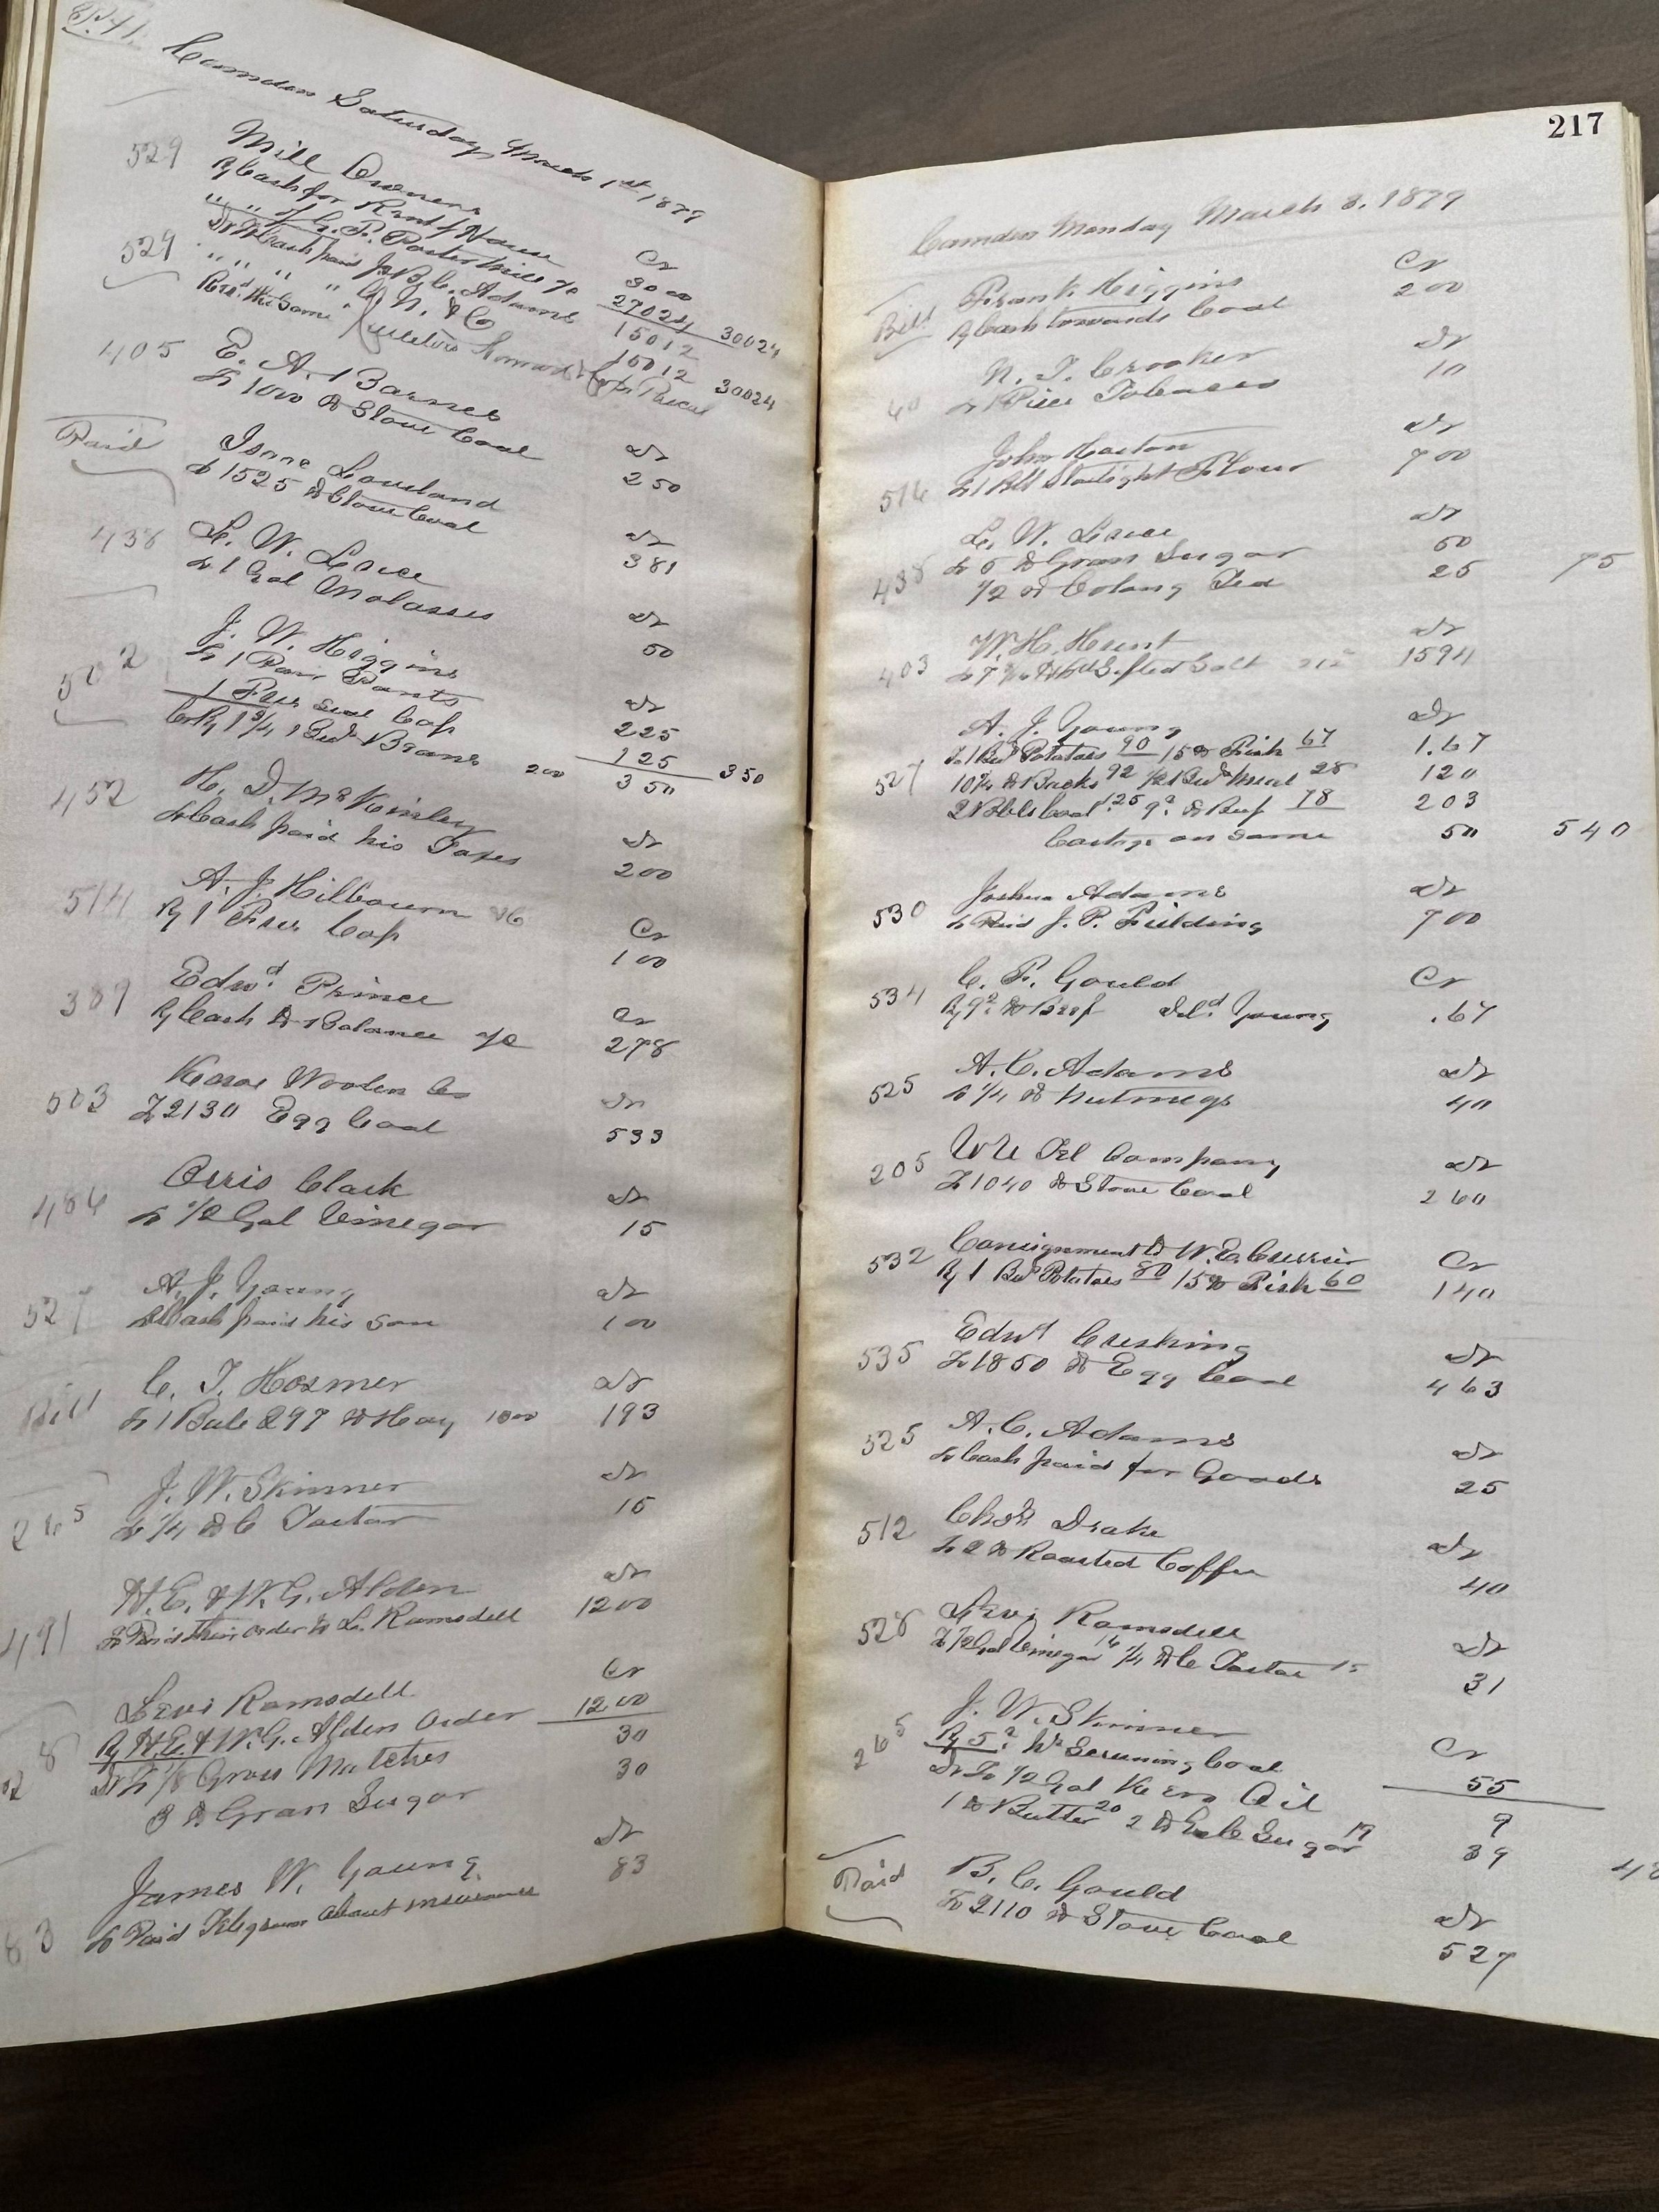 Camden Saturday, March 1st, 1879
529 Mill Owners Cr
By Cash for Rent of House 30 00
" " of G. F. Porter Mill a/c 270 24 300 24
529 Dr To Cash paid J. B. C. Adams 150 12
" " " " N. & Co 150 12 300 24
Recd the same
405 E. A. Barnes Dr
To 1000 lb Stove Coal 2 50
Paid Isaac Loveland Dr
To 1525 lb Stove Coal 3 81
438 L. W. Luce Dr
To 1 Gal Molasses 50
502 J. W. Higgins Dr
To 1 Pair Pants 2 25
1 Fur Seal Cap 1 25 3 50
Cr By 1 3/4 Bus Beans 2 00 3 50
452 H. D. McKinley Dr
To Cash paid his Taxes 2 00
514 A. J. Hilbourn Cr
By 1 Fur Cap 1 00
389 Edwd Prince Cr
By Cash to Balance a/c 2 78
503 Woolen Co Dr
To 2130 Egg Coal 5 33
486 Orris Clark Dr
To 1/2 Gal Vinegar 15
527 A. J. Young Dr
To Cash paid his Son 1 00
Bill C. T. Hosmer Dr
To 1 Bale 297 lb Hay 13 00 1 93
265 J. W. Skinner Dr
To 1/4 lb C Tartar 15
491 H. E. & W. G. Alden Dr
To Paid their order to L. Ramsdell 12 00
Levi Ramsdell Cr
By H. E. & W. G. Alden Order 12 00
Dr To 1/8 Gross Matches 30
3 lb Gran Sugar 30
83 James W. Young Dr
To Paid Telegram about insurance 83
217
Camden Monday March 3, 1879
Bill Frank Higgins Cr
By Cash towards Coal 2 00
40 N. T. Crooker Dr
To 1 Piece Tobacco 10
516 John Dr
To 1 Bbl Starlight Flour 7 00
438 L. W. Luce Dr
To 5 lb Gran Sugar 50
1/2 lb Oolong Tea 25 75
403 W. H. Hunt Dr
To Sifted Salt 15 94
A. J. Young Dr
To 1 Bus Potatoes 90 15 lb Fish 67 1.67
527 10 1/4 lb Backs 92 1/2 Bus Meal 28 1 20
2 Bbls Coal 1.25 9 lb Beef 78 2 03
Cartage on Same 50 5 40
530 Joshua Adams Dr
To Paid J. P. Fielding 7 00
534 C. F. Gould Cr
By 9 lb Beef Deld Young .67
525 A. C. Adams Dr
To 1/4 lb Nutmegs 40
205 W U Tel Company Dr
To 1040 lb Stove Coal 2 60
532 Consignment to W. E. Currier Cr
By 1 Bus Potatoes 80 15 lb Fish 60 1 40
535 Edwd Cushing Dr
To 1850 lb Egg Coal 4 63
525 A. C. Adams Dr
To Cash paid for Goods 25
512 Chas Drake Dr
To 2 lb Roasted Coffee 40
528 Levi Ramsdell Dr
To 1/2 Gal Vinegar 16 1/4 lb C Tartar 15 31
265 J. W. Skinner Cr
By Screening Coal 55
Dr To 1/2 Gal Kero Oil 9
1 lb Butter 20 2 lb Ex C Sugar 19 39 48
Paid B. C. Gould Dr
To 2110 lb Stove Coal 5 27